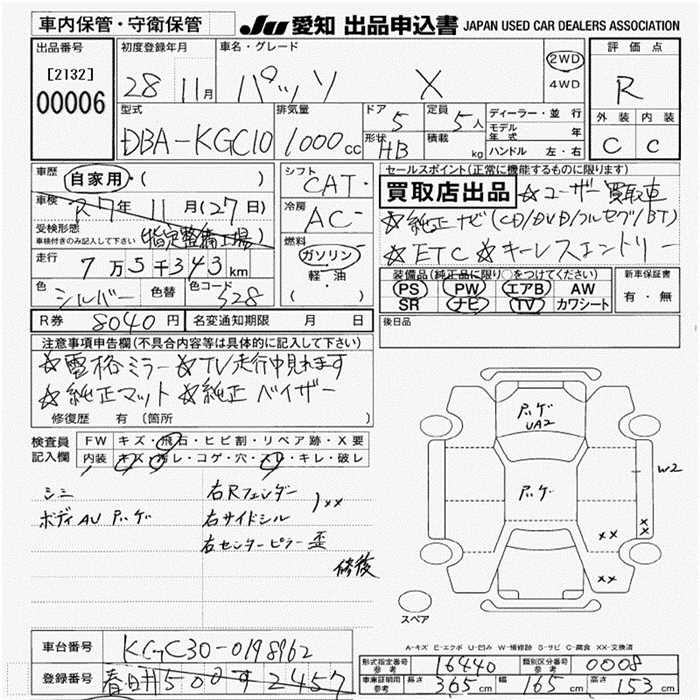 車内保管・守衛保管
JU 愛知 出品申込書 JAPAN USED CAR DEALERS ASSOCIATION
出品番号
[2132]
00006
初度登録年月
28年 11月
車名・グレード
パッソ X
2WD
4WD
評価点
R
外装 内装
C C
型式
DBA-KGC10
排気量
1000cc
ドア 5
形状 HB
定員 5人
積載 kg
ディーラー・並行
モデル年式 年
ハンドル 左・右
車歴
自家用・( )
車検
R7年 11月(27日)
受検形態
車検付きのみ記入して下さい
(指定整備工場)
走行
7万5千343km
色 シルバー 色替 色コード 328
シフト
CAT・
冷房
AC・
燃料
ガソリン
軽・油
( ・ )
セールスポイント(正常に機能するものに限ります)
買取店出品 ☆ユーザー買取車
☆純正ナビ(CD/DVD/フルセグ/BT)
☆ETC ☆キーレスエントリー
装備品(純正品に限り○をつけてください)
PS PW エアB AW
SR ナビ TV カワシート
新車保証書
有・無
R券 8040円 名変通知期限 月 日
後日品
注意事項申告欄(不具合内容等は具体的に記入して下さい)
☆電格ミラー ☆TV走行中見れます
☆純正マット ☆純正バイザー
修復歴 有 (箇所 )
検査員
記入欄
FW キズ・飛石・ヒビ割・リペア跡・X要
内装 キズ・汚レ・コゲ・穴・スレ・キレ・破レ
シミ
ボディAU
右Rフェンダー
右サイドシル
XX
右センターピラー 歪
修復
UA2
W2
XX
XX
XX
スペア
A-キズ E-エクボ U-凹み W-補修跡 S-サビ C-腐食 XX-交換済
車台番号 KGC30-0198962
登録番号 春日井500す2457
型式指定番号
参考
16440
類別区分番号
参考
0008
車庫証明用
参考
長さ 365cm 幅 165cm 高さ 153cm